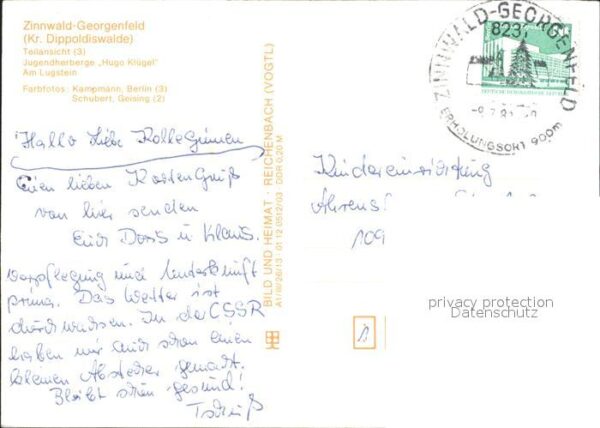 Zinnwald-Georgenfeld
(Kr. Dippoldiswalde)
Teilansicht (3)
Jugendherberge „Hugo Klügel"
Am Lugstein
Farbfotos: Kampmann, Berlin (3)
Schubert, Geising (2)
Hallo liebe Kolleginnen
Einen lieben Kartengruß
von hier senden
Euch Doris u. Klaus.
Verpflegung und Unterkunft
prima. Das Wetter ist
durchwachsen. In der CSSR
haben wir auch schon einen
kleinen Abstecher gemacht.
Bleibt schön gesund!
Tschüß
BILD UND HEIMAT · REICHENBACH (VOGTL)
A1/III/26/13 01 12 0512/03 DDR 0,20 M
ZINNWALD-GEORGENFELD
823
ERHOLUNGSORT 900m
Kindereinrichtung
Ahrens
109
privacy protection
Datenschutz